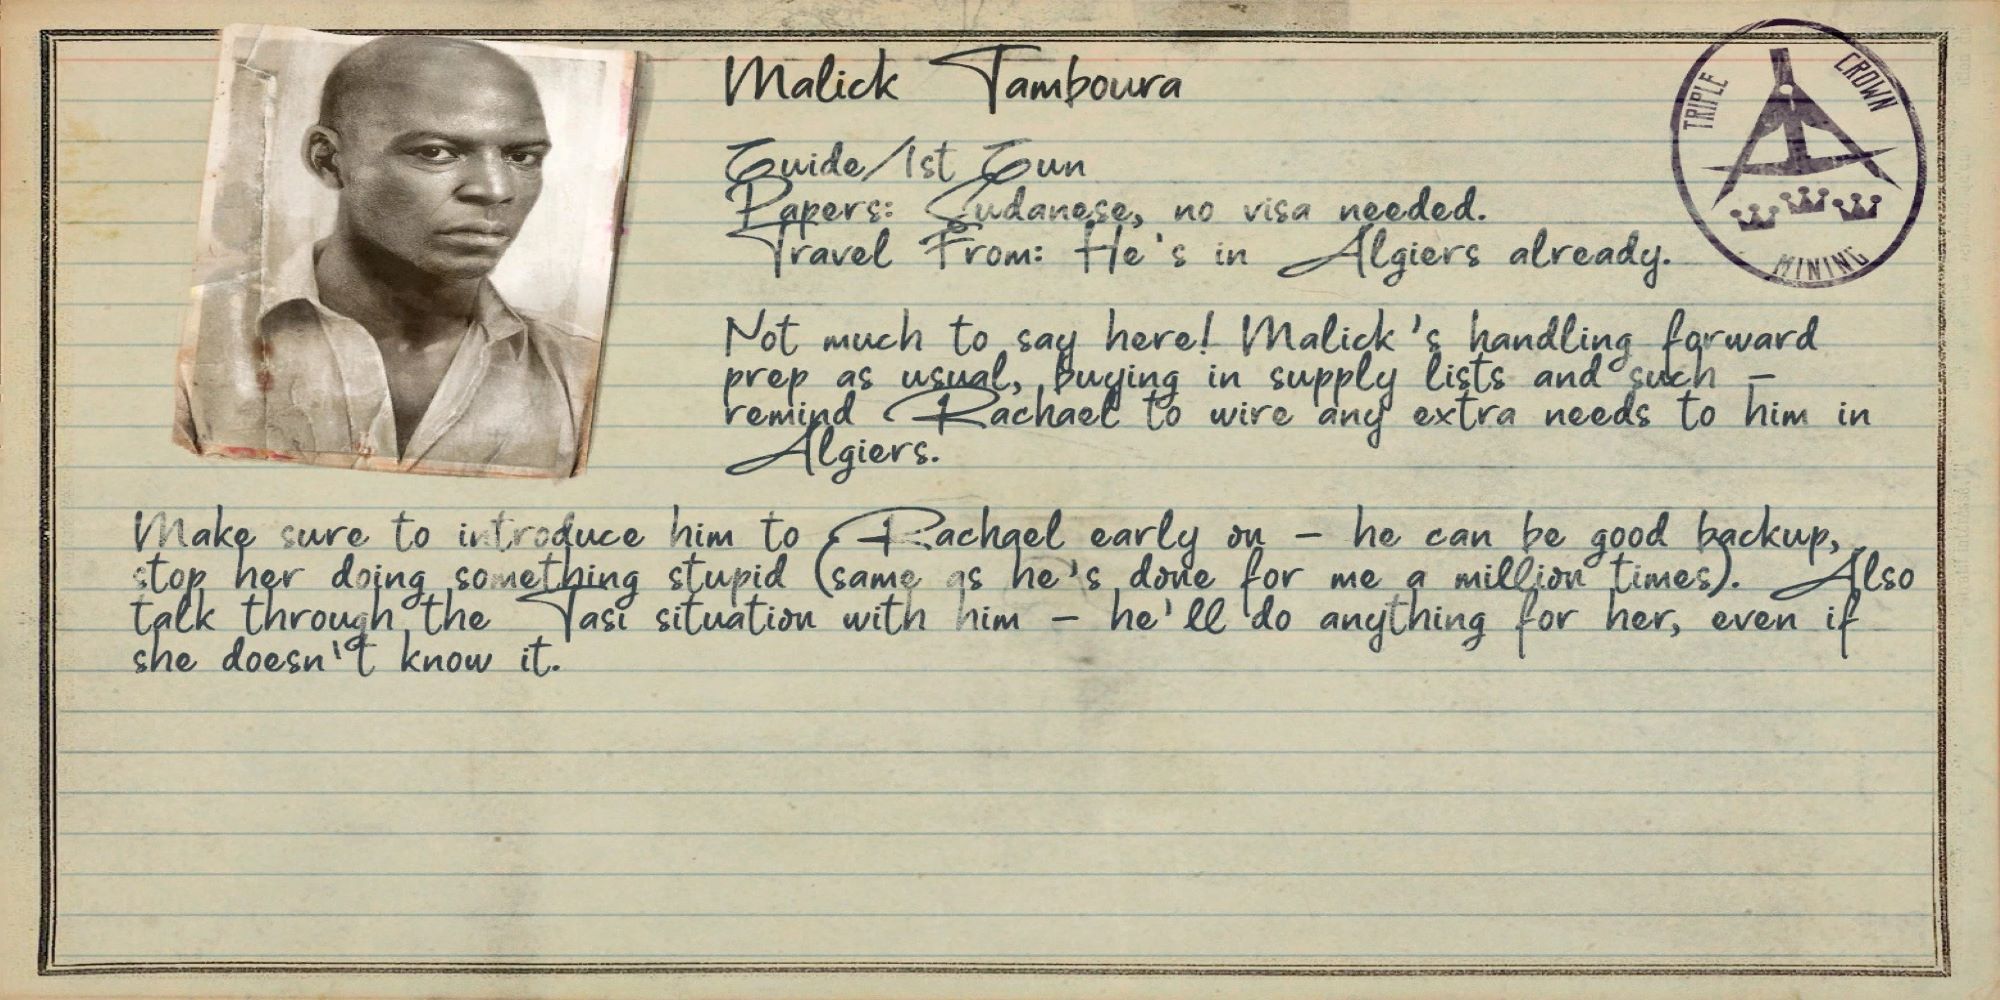 Malick Tamboura
TRIPLE CROWN MINING
Guide/1st Gun
Papers: Sudanese, no visa needed.
Travel From: He's in Algiers already.
Not much to say here! Malick's handling forward
prep as usual, buying in supply lists and such –
remind Rachael to wire any extra needs to him in
Algiers.
Make sure to introduce him to Rachael early on – he can be good backup,
stop her doing something stupid (same as he's done for me a million times). Also
talk through the Tasi situation with him – he'll do anything for her, even if
she doesn't know it.